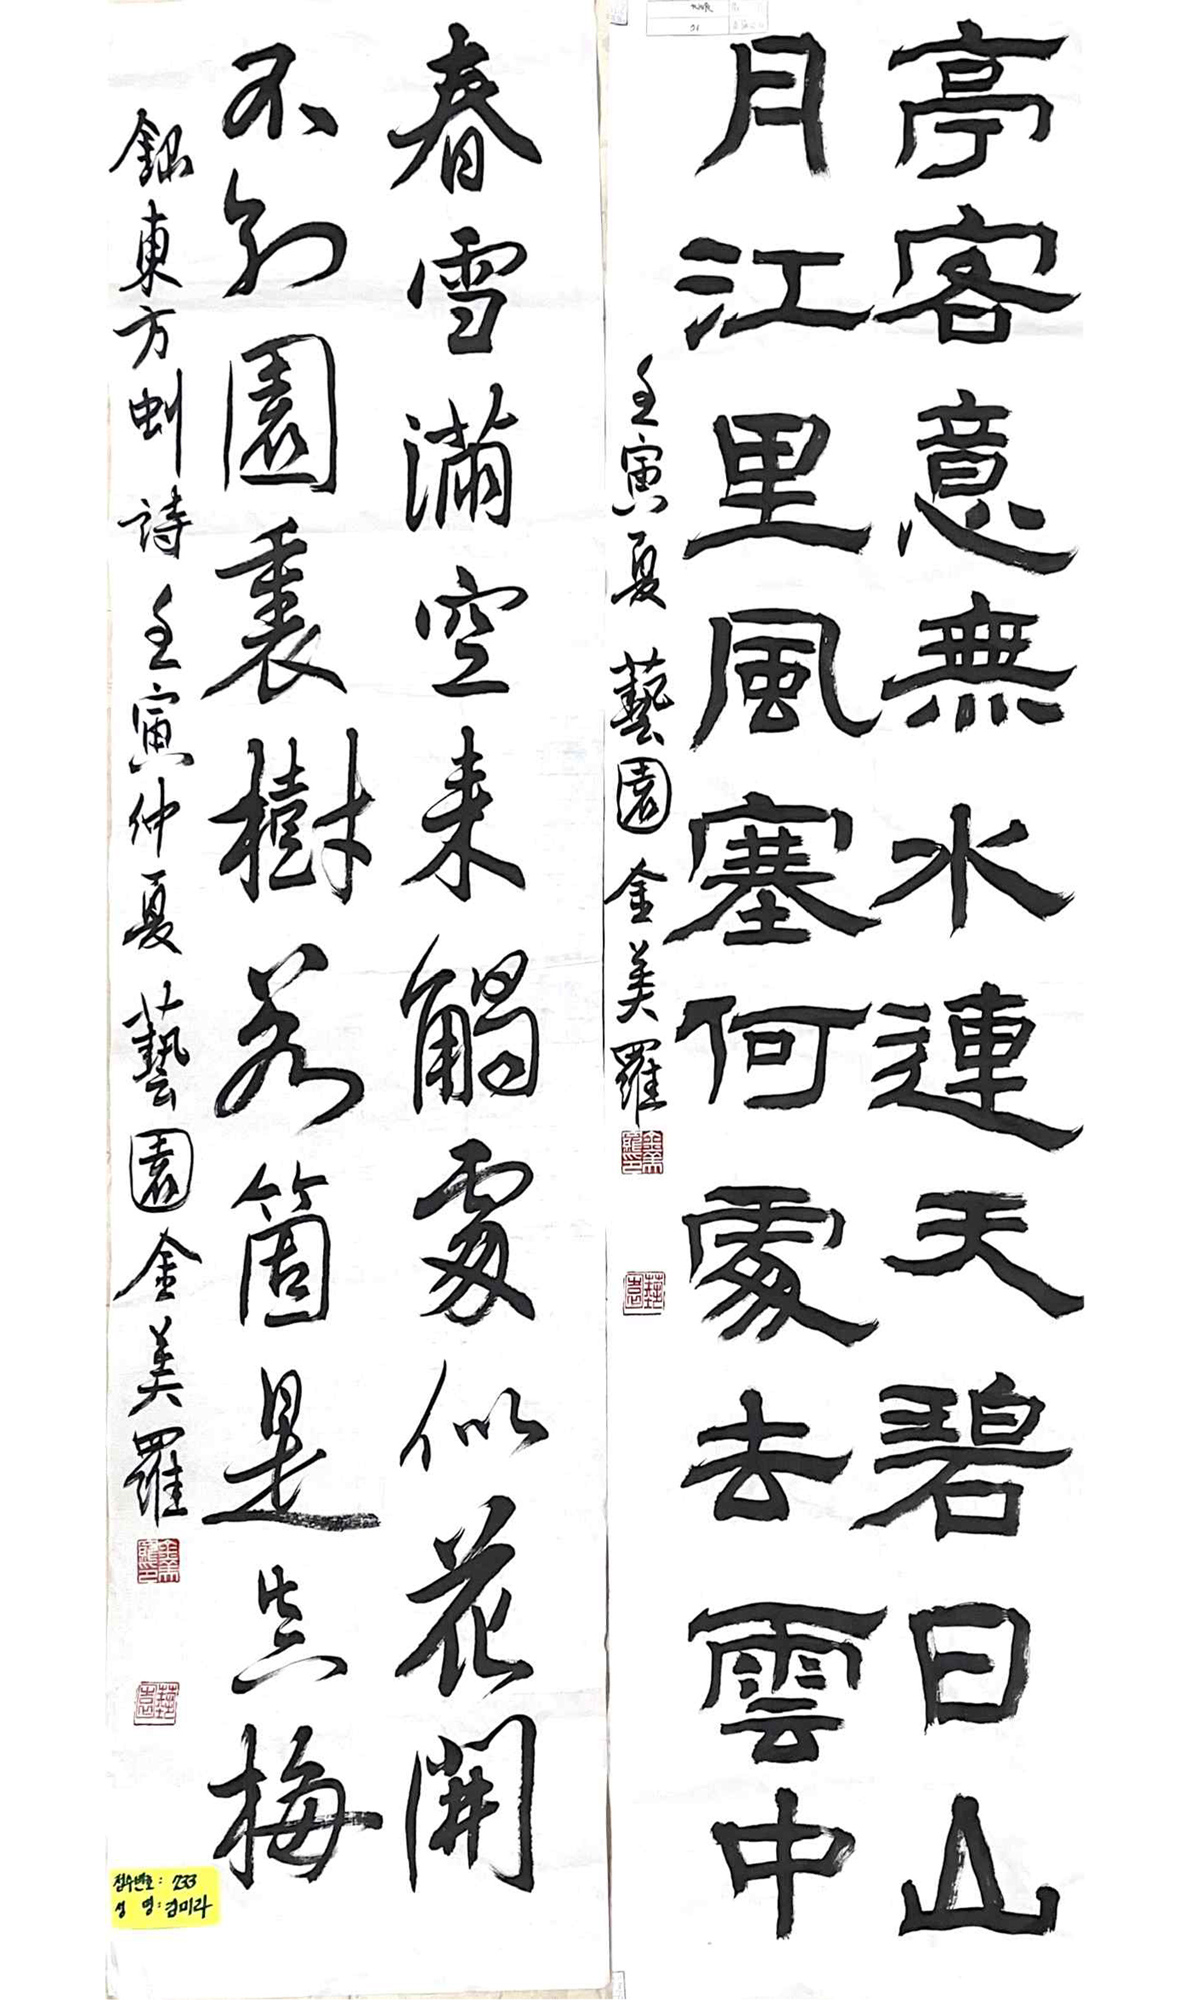 亭客意無水連天碧日山
月江里風塞何處去雲中
壬寅夏 藝園 金美羅
春雪滿空来觸處似花開
不知園裏樹若箇是真梅
錄東方虯詩 壬寅仲夏 藝園 金美羅
접수번호: 233
성 명: 김미라